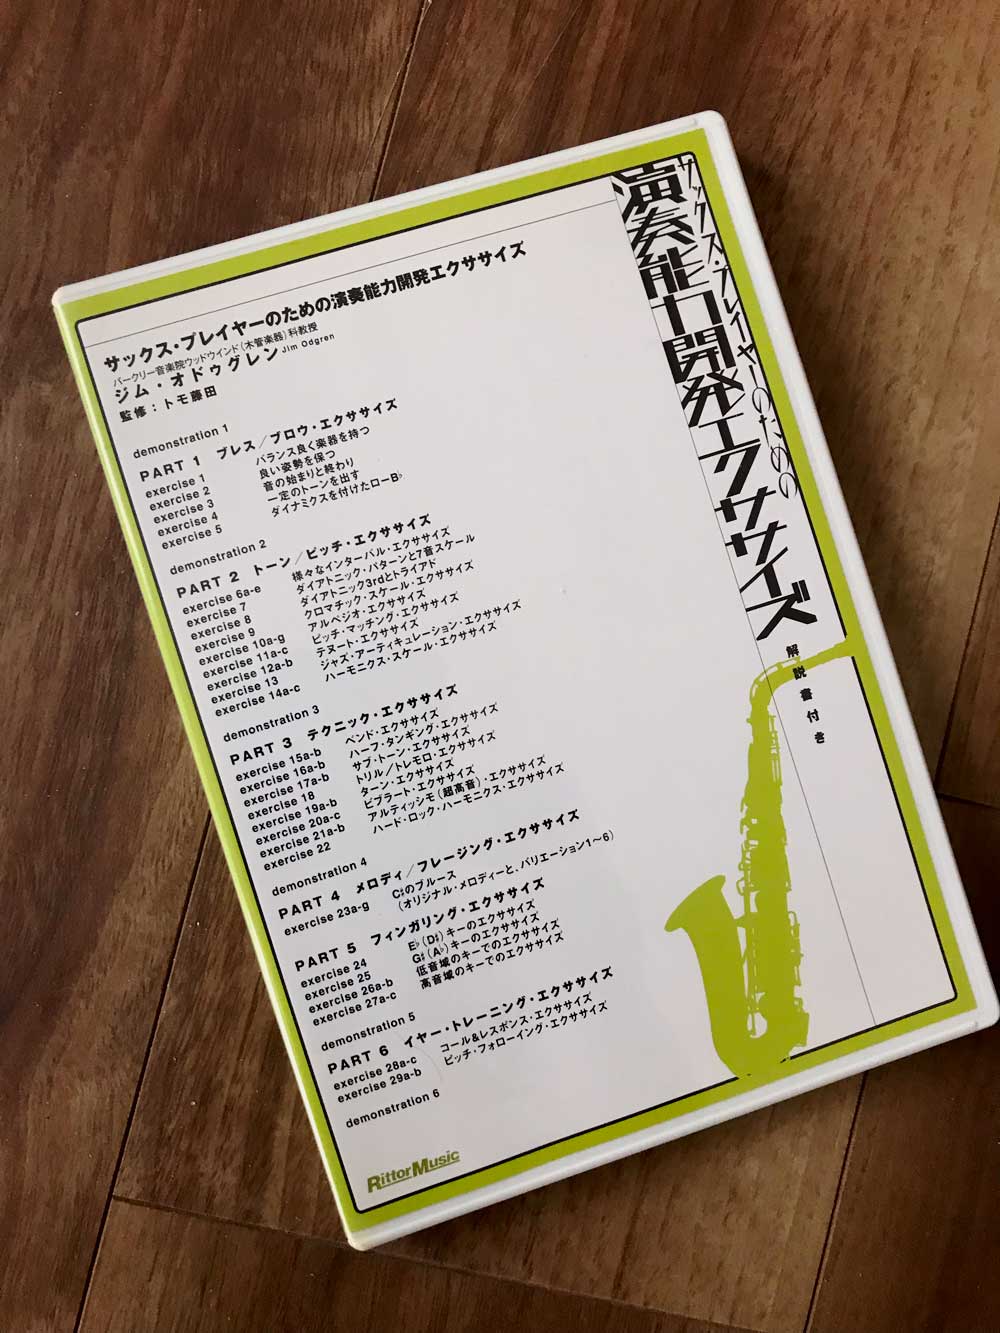 サックス・プレイヤーのための
演奏能力開発エクササイズ
解説書付き
サックス・プレイヤーのための演奏能力開発エクササイズ
バークリー音楽院ウッドウインド(木管楽器)科教授
ジム・オドゥグレン Jim Odgren
監修：トモ藤田
demonstration 1
PART 1 ブレス／ブロウ・エクササイズ
exercise 1 バランス良く楽器を持つ
exercise 2 良い姿勢を保つ
exercise 3 音の始まりと終わり
exercise 4 一定のトーンを出す
exercise 5 ダイナミクスを付けたローB♭
demonstration 2
PART 2 トーン／ピッチ・エクササイズ
exercise 6a-e 様々なインターバル・エクササイズ
exercise 7 ダイアトニック・パターンと7音スケール
exercise 8 ダイアトニック3rdとトライアド
exercise 9 クロマチック・スケール・エクササイズ
exercise 10a-g アルペジオ・エクササイズ
exercise 11a-c ピッチ・マッチング・エクササイズ
exercise 12a-b テヌート・エクササイズ
exercise 13 ジャズ・アーティキュレーション・エクササイズ
exercise 14a-c ハーモニクス・スケール・エクササイズ
demonstration 3
PART 3 テクニック・エクササイズ
exercise 15a-b ベンド・エクササイズ
exercise 16a-b ハーフ・タンギング・エクササイズ
exercise 17a-b サブ・トーン・エクササイズ
exercise 18 トリル／トレモロ・エクササイズ
exercise 19a-b ターン・エクササイズ
exercise 20a-c ビブラート・エクササイズ
exercise 21a-b アルティッシモ(超高音)・エクササイズ
exercise 22 ハード・ロック・ハーモニクス・エクササイズ
demonstration 4
PART 4 メロディ／フレージング・エクササイズ
exercise 23a-g C♯のブルース
(オリジナル・メロディーと、バリエーション1〜6)
PART 5 フィンガリング・エクササイズ
exercise 24 E♭(D♯)キーのエクササイズ
exercise 25 G♯(A♭)キーのエクササイズ
exercise 26a-b 低音域のキーでのエクササイズ
exercise 27a-c 高音域のキーでのエクササイズ
demonstration 5
PART 6 イヤー・トレーニング・エクササイズ
exercise 28a-c コール&レスポンス・エクササイズ
exercise 29a-b ピッチ・フォローイング・エクササイズ
demonstration 6
Rittor Music